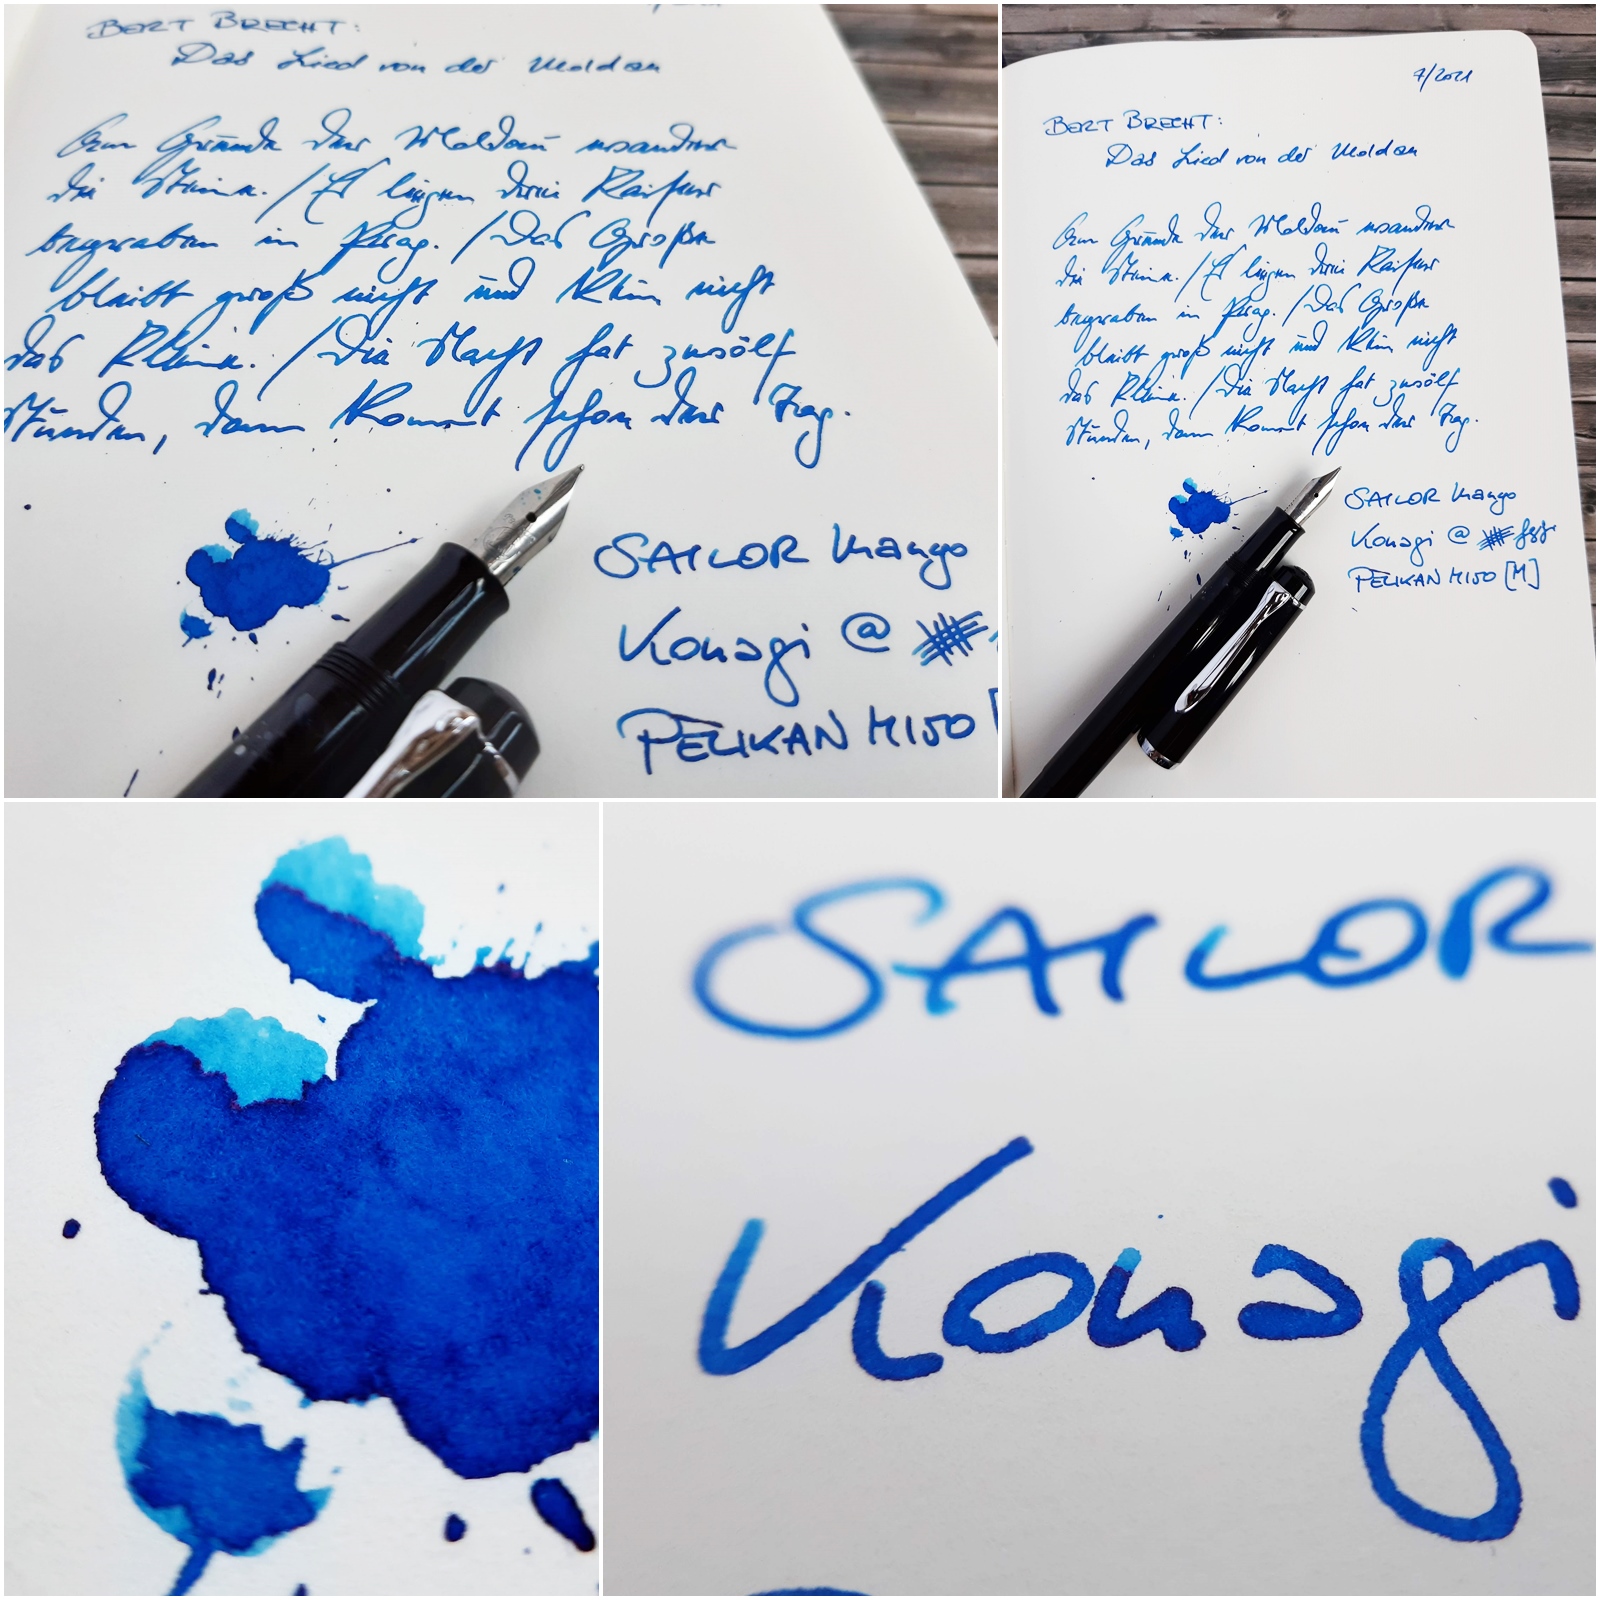 BERT BRECHT:
Das Lied von der Moldau
Am Grunde der Moldau wandern
die Steine. / Es liegen drei Kaiser
begraben in Prag. / Das Große
bleibt groß nicht und klein nicht
das Kleine. / Die Nacht hat zwölf
Stunden, dann kommt schon der Tag.
SAILOR Manyo
Konagi @
PELIKAN M150 [
7/2021
BERT BRECHT:
Das Lied von der Moldau
Am Grunde der Moldau wandern
die Steine. / Es liegen drei Kaiser
begraben in Prag. / Das Große
bleibt groß nicht und klein nicht
das Kleine. / Die Nacht hat zwölf
Stunden, dann kommt schon der Tag.
SAILOR Manyo
Konagi @
PELIKAN M150 [M]
SAILOR
Konagi